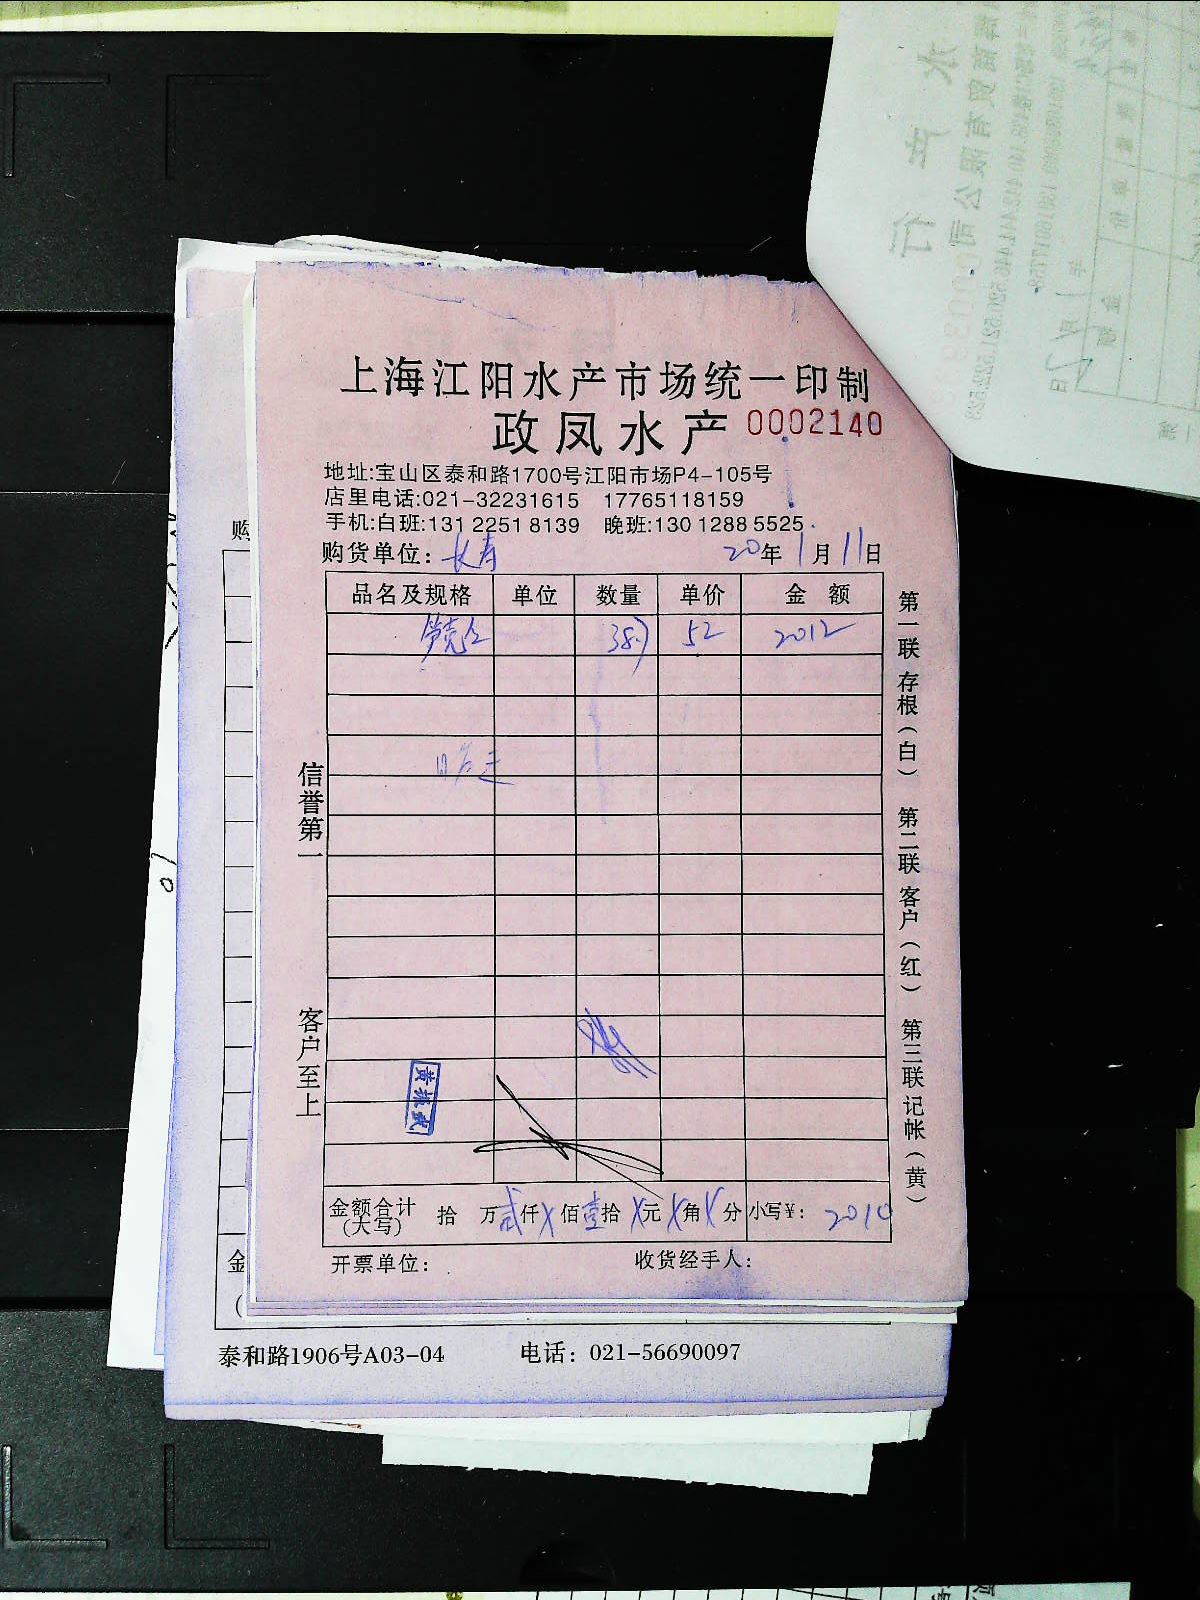 上海江阳水产市场统一印制
政凤水产 0002140
地址:宝山区泰和路1700号江阳市场P4-105号
店里电话:021-32231615 17765118159
手机:白班:131 2251 8139 晚班:130 1288 5525
购货单位: 长寿 20年1月11日
品名及规格 单位 数量 单价 金额
38.7 52 2012
信誉第一
客户至上
第一联 存根(白) 第二联 客户(红) 第三联 记帐(黄)
金额合计(大写) 拾 万贰仟X佰壹拾X元X角X分 小写¥: 2010
开票单位: 收货经手人:
购
金
泰和路1906号A03-04 电话: 021-56690097